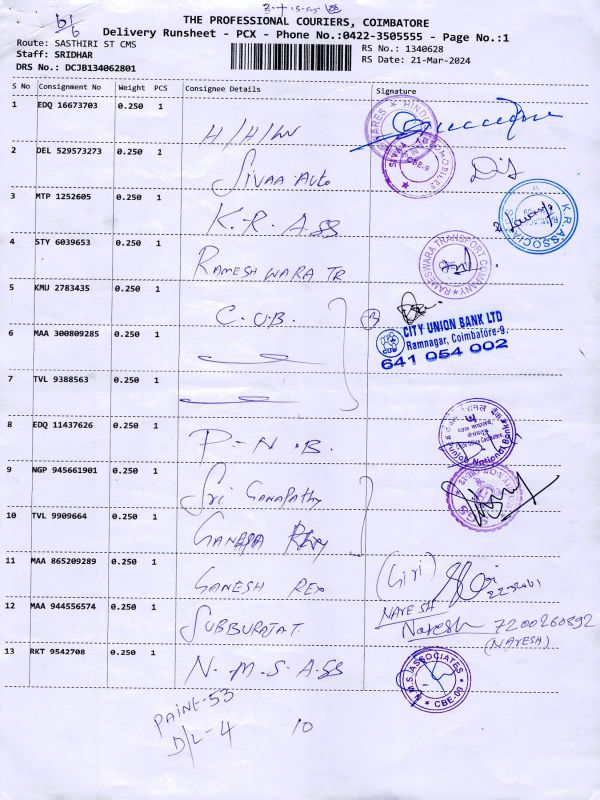 THE PROFESSIONAL COURIERS, COIMBATORE
Delivery Runsheet - PCX - Phone No.:0422-3505555 - Page No.:1
Route: SASTHIRI ST CMS
RS No.: 1340628
Staff: SRIDHAR
RS Date: 21-Mar-2024
DRS No.: DCJB134062801
S No Consignment No Weight PCS Consignee Details Signature
1 EDQ 16673703 0.250 1
H/H/W
2 DEL 529573273 0.250 1
SIVAA Auto
CBE-9
3 MTP 1252605 0.250 1
K.R. ASS
K.R. ASSOCIA
4 STY 6039653 0.250 1
RAMESHWARA TR
RAMESWARA TRANSPORT COMPANY
5 KMU 2783435 0.250 1
C.U.B.
CITY UNION BANK LTD
Ramnagar, Coimbatore-9.
641 054 002
6 MAA 300809285 0.250 1
7 TVL 9388563 0.250 1
8 EDQ 11437626 0.250 1
P-N.B.
Punjab National Bank
9 NGP 945661901 0.250 1
Sri GANAPATHY
10 TVL 9909664 0.250 1
11 MAA 865209289 0.250 1
GANESH REX
(Giri)
12 MAA 944556574 0.250 1
SUBBURAJA T.
NARESH
Naresh 7200260892
(NARESH)
13 RKT 9542708 0.250 1
N.M.S. ASS
N.M.S. ASSOCIATES
CBE-09
PAINE-53
D/L-4 10